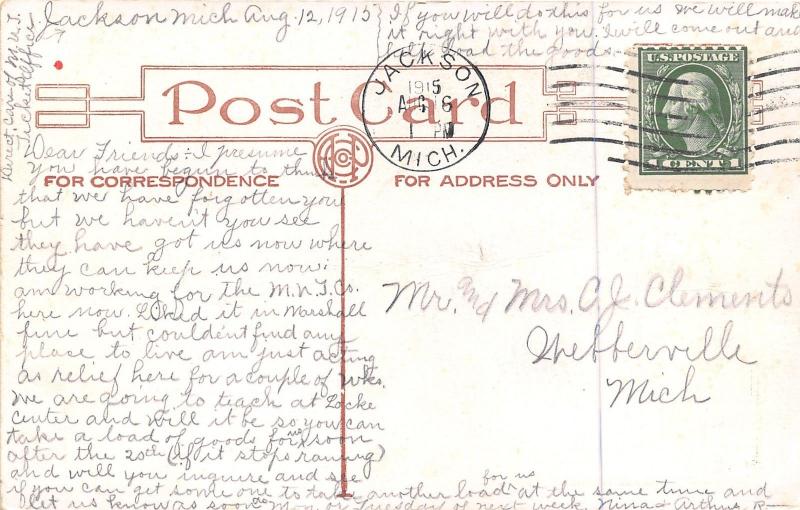 Jackson Mich Aug. 12, 1915
If you will do this for us we will make
it right with you. I will come out and
load the goods.
Direct, Care of M.U.T.
Ticket Office
Post Card
JACKSON
1915
1 PM
MICH.
U.S. POSTAGE
1 CENT 1
FOR CORRESPONDENCE
FOR ADDRESS ONLY
Dear Friends:- I presume
you have begun to think
that we have forgotten you
but we haven't you see
they have got us now where
they can keep us now:
am working for the M.U.T. Co.
here now. Liked it in Marshall
fine but couldent find any
place to live am just acting
as relief here for a couple of wks.
We are going to teach at Locke
Center and will it be so you can
take a load of goods for us soon
after the 20th (if it stops raining)
and will you inquire and see
if you can get someone to take another load for us at the same time and
let us know as soon as Mon. or Tuesday of next week. Nina & Arthur R—
Mr. and Mrs. C.J. Clements
Webberville
Mich